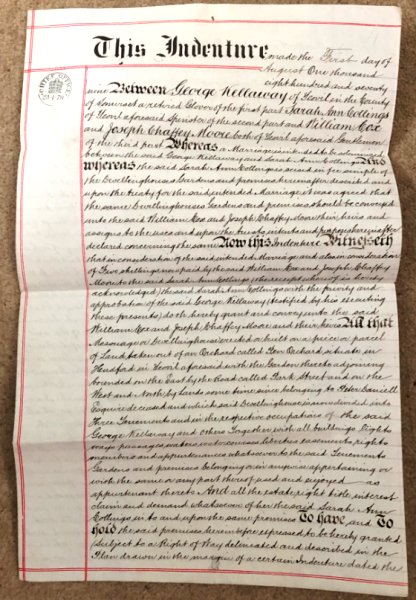 This Indenture made the First day of
August One thousand
eight hundred and seventy
nine Between George Kellaway of Yeovil in the County
of Somerset a retired Glover of the first part Sarah Ann Collings
of Yeovil aforesaid Spinster of the second part and William Cox
and Joseph Chaffey Moore both of Yeovil aforesaid Gentlemen
of the third part Whereas a Marriage is intended to be
between the said George Kellaway and Sarah Ann Collings And
whereas the said Sarah Ann Collings is seised in fee simple of
the Dwellinghouses Gardens and premises hereinafter described and
upon the treaty for the said intended Marriage it was agreed that
the same Dwellinghouses Gardens and premises should be conveyed
unto the said William Cox and Joseph Chaffey Moore their heirs and
assigns to the uses and upon the trusts intents and purposes hereinafter
declared concerning the same Now this Indenture Witnesseth
that in consideration of the said intended Marriage and also in consideration
of Five shillings now paid by the said William Cox and Joseph Chaffey
Moore to the said Sarah Ann Collings (the receipt whereof is hereby
acknowledged) the said Sarah Ann Collings with the privity and
approbation of the said George Kellaway (testified by his executing
these presents) doth hereby grant and convey unto the said
William Cox and Joseph Chaffey Moore and their heirs All that
Messuage or Dwellinghouse erected & built on a piece or parcel
of Land taken out of an Orchard called Orchard situate in
Hendford in Yeovil aforesaid with the Garden thereto adjoining
bounded on the East by the Road called Park Street and on the
West and North by Lands some time since belonging to Peter Daniell
Esquire deceased and which said Dwellinghouse is now divided into
Three Tenements and in the respective occupations of the said
George Kellaway and others Together with all buildings lights
ways passages waters watercourses liberties easements rights
members and appurtenances whatsoever to the said Tenements
Gardens and premises belonging or in anywise appertaining or
with the same or any part thereof used and enjoyed as
appurtenant thereto And all the estate right title interest
claim and demand whatsoever of her the said Sarah Ann
Collings in to and upon the same premises To have and To
hold the said premises hereinbefore expressed to be hereby granted
(subject to a Right of Way delineated and described in the
Plan drawn in the margin of a certain Indenture dated the